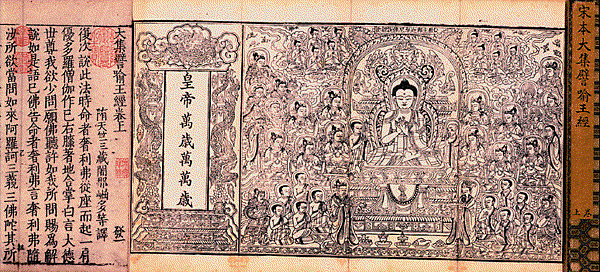 宋本大集譬喻王經
皇帝萬歲萬萬歲
大集譬喻王經卷上 發
隋天竺三藏闍那崛多等譯
復次說此法時命者奢利弗從座而起一肩
優多羅僧伽作已右膝著地合掌白言大德
世尊我欲少問願佛聽許如我所問賜為解
說如是語已佛告命者奢利弗言奢利弗隨
汝所欲當問如來阿羅訶三藐三佛陀其所